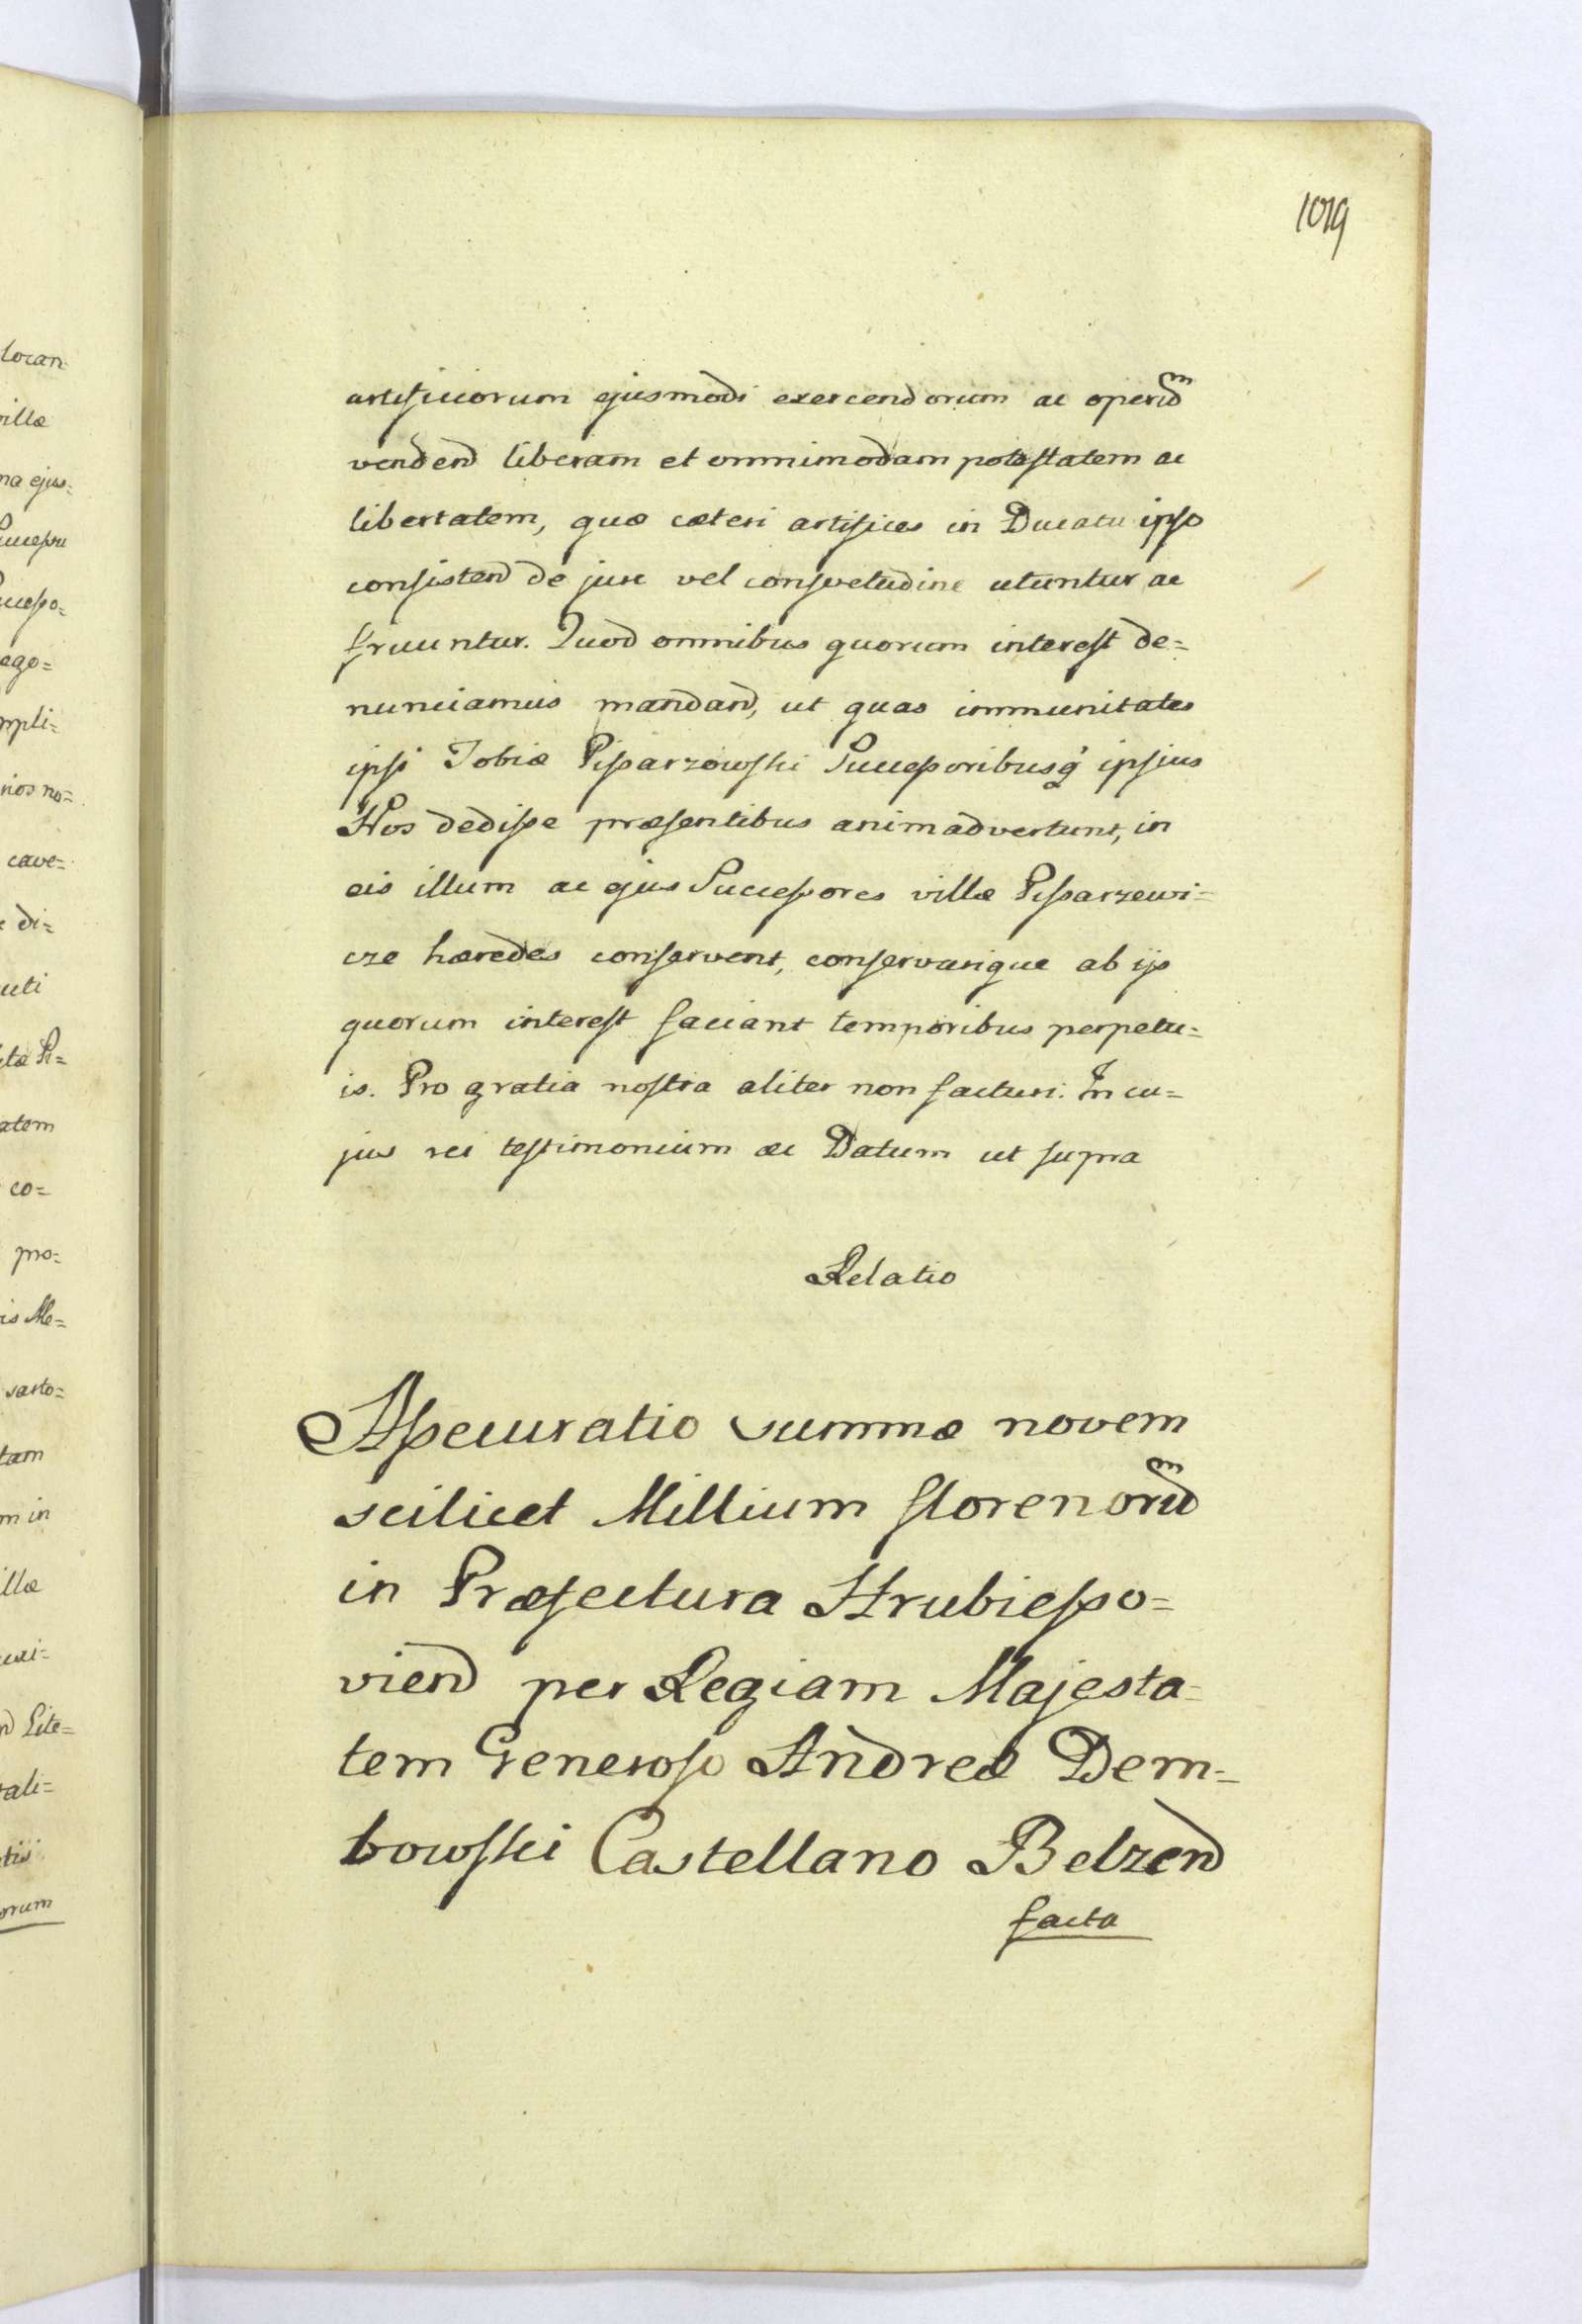 1019
artificiorum ejusmodi exercendorum ac operum
vendend liberam et omnimodam potestatem ac
libertatem, quæ cæteri artifices in Ducatu ipso
consistend de jure vel consvetudine utuntur ac
fruuntur. Quod omnibus quorum interest de=
nunciamus mandand, ut quas immunitates
ipsi Tobiæ Pisarzowski Successoribusq ipsius
Nos dedisse præsentibus animadvertunt, in
eis illum ac ejus Successores villæ Pissarzewi=
cze hæredes conservent, conservarique ab ijs
quorum interest faciant temporibus perpetu=
is. Pro gratia nostra aliter non facturi. In cu=
jus rei testimonium ac Datum ut supra
Relatio
Assecuratio summæ novem
scilicet Millium florenorum
in Præfectura Hrubiesso=
viend per Regiam Majesta=
tem Generoso Andreæ Dem=
bowski Castellano Belzend
facta
locan
villæ
na ejus=
ago=
mpli=
rios no=
cave=
di=
uti
atem
co=
pro=
is Me=
sarto=
tam
m in
illæ
Lite=
tali=
tis
orum